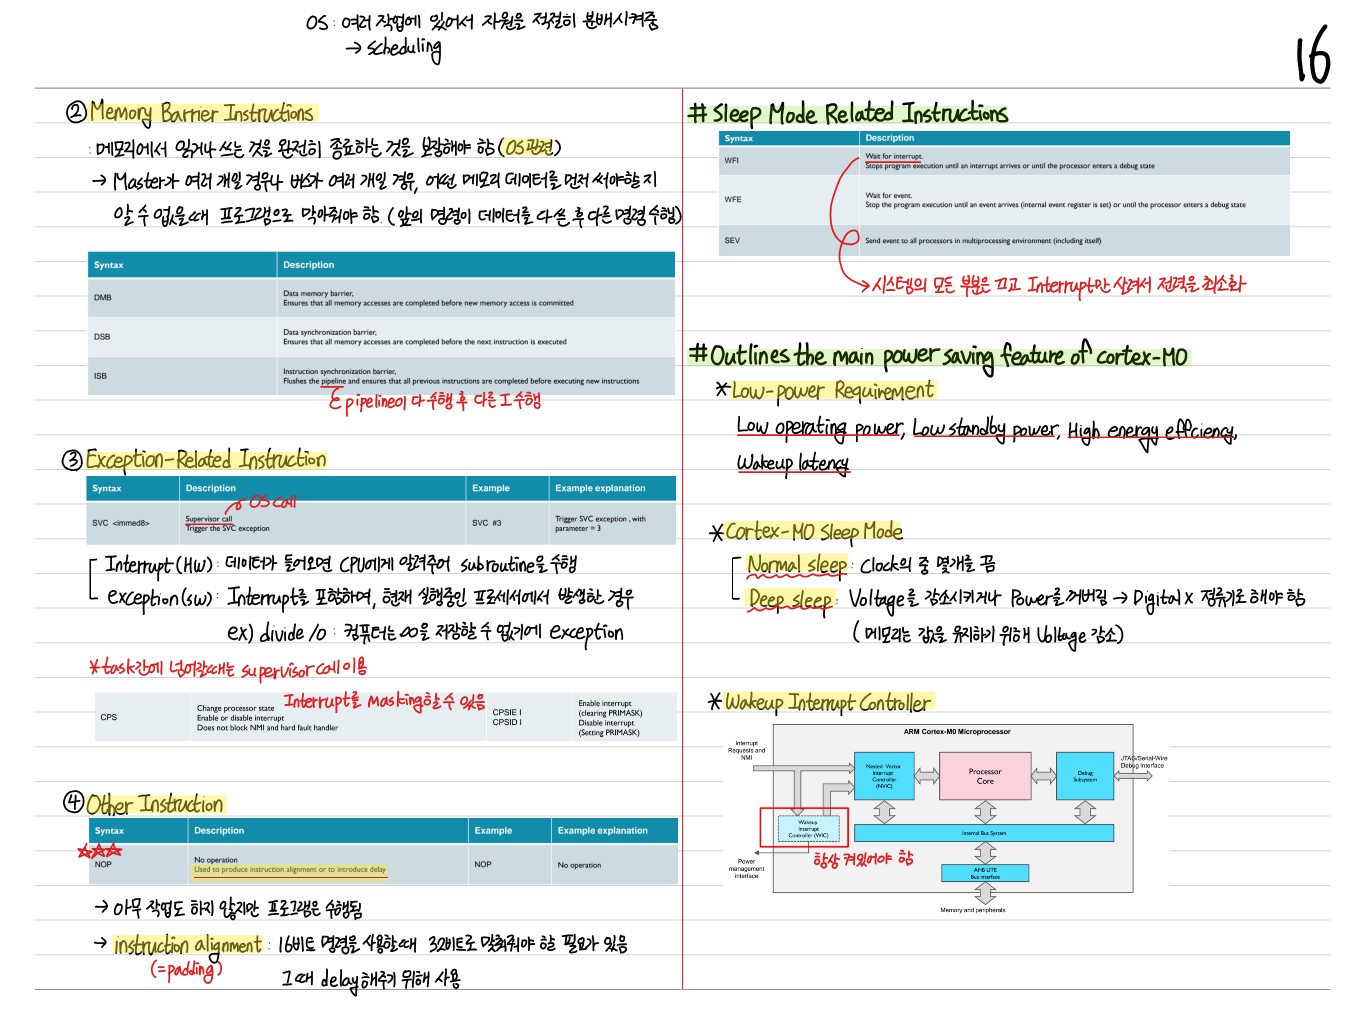 OS : 여러 작업에 있어서 자원을 적절히 분배시켜줌
→ scheduling
16
② Memory Barrier Instructions
: 메모리에서 읽거나 쓰는 것을 완전히 종료하는 것을 보장해야 함 (OS 관련)
→ Master가 여러 개일 경우나 버스가 여러 개일 경우, 어떤 메모리 데이터를 먼저 써야할 지
알 수 없을때 프로그램으로 막아줘야 함. (앞의 명령이 데이터를 다 쓴 후 다른 명령 수행)
Syntax Description
DMB Data memory barrier,
Ensures that all memory accesses are completed before new memory access is committed
DSB Data synchronization barrier,
Ensures that all memory accesses are completed before the next instruction is executed
ISB Instruction synchronization barrier,
Flushes the pipeline and ensures that all previous instructions are completed before executing new instructions
pipeline이 다 수행 후 다른 I 수행
③ Exception-Related Instruction
Syntax Description Example Example explanation
OS call
SVC <immed8> Supervisor call
Trigger the SVC exception
SVC #3 Trigger SVC exception , with
parameter = 3
Interrupt (HW) : 데이터가 들어오면 CPU에게 알려주어 subroutine을 수행
exception(sw) : Interrupt를 포함하며, 현재 실행중인 프로세서에서 발생한 경우
ex) divide /0 : 컴퓨터는 ∞을 저장할 수 없기에 exception
*task간에 넘어갈때는 supervisor call 이용
Interrupt를 masking할 수 있음
CPS Change processor state
Enable or disable interrupt
Does not block NMI and hard fault handler
CPSIE I
CPSID I
Enable interrupt
(clearing PRIMASK)
Disable interrupt
(Setting PRIMASK)
④ Other Instruction
Syntax Description Example Example explanation
☆☆☆
NOP No operation
Used to produce instruction alignment or to introduce delay
NOP No operation
→ 아무 작업도 하지 않지만 프로그램은 수행됨
→ instruction alignment : 16비트 명령을 사용할때 32비트로 맞춰줘야 할 필요가 있음
(=padding) 그때 delay 해주기 위해 사용
# Sleep Mode Related Instructions
Syntax Description
WFI Wait for interrupt.
Stops program execution until an interrupt arrives or until the processor enters a debug state
WFE Wait for event.
Stop the program execution until an event arrives (internal event register is set) or until the processor enters a debug state
SEV Send event to all processors in multiprocessing environment (including itself)
→ 시스템의 모든 부분은 끄고 Interrupt만 살려서 전력을 최소화
# Outlines the main power saving feature of cortex-M0
* Low-power Requirement
Low operating power, Low standby power, High energy effciency,
Wakeup latency
* Cortex-M0 Sleep Mode
Normal sleep : Clock의 중 몇개를 끔
Deep sleep : Voltage를 감소시키거나 Power를 꺼버림 → Digital x 정류기로 해야 함
( 메모리는 값을 유지하기 위해 Voltage 감소)
* Wakeup Interrupt Controller
ARM Cortex-M0 Microprocessor
Interrupt
Requests and
NMI
Nested Vector
Interrupt
Controller
(NVIC)
Processor
Core
Debug
Subsystem
JTAG/Serial-Wire
Debug Interface
Wakeup
Interrupt
Controller (WIC)
Internal Bus System
항상 켜있어야 함
Power
management
interface
AHB LITE
Bus interface
Memory and peripherals